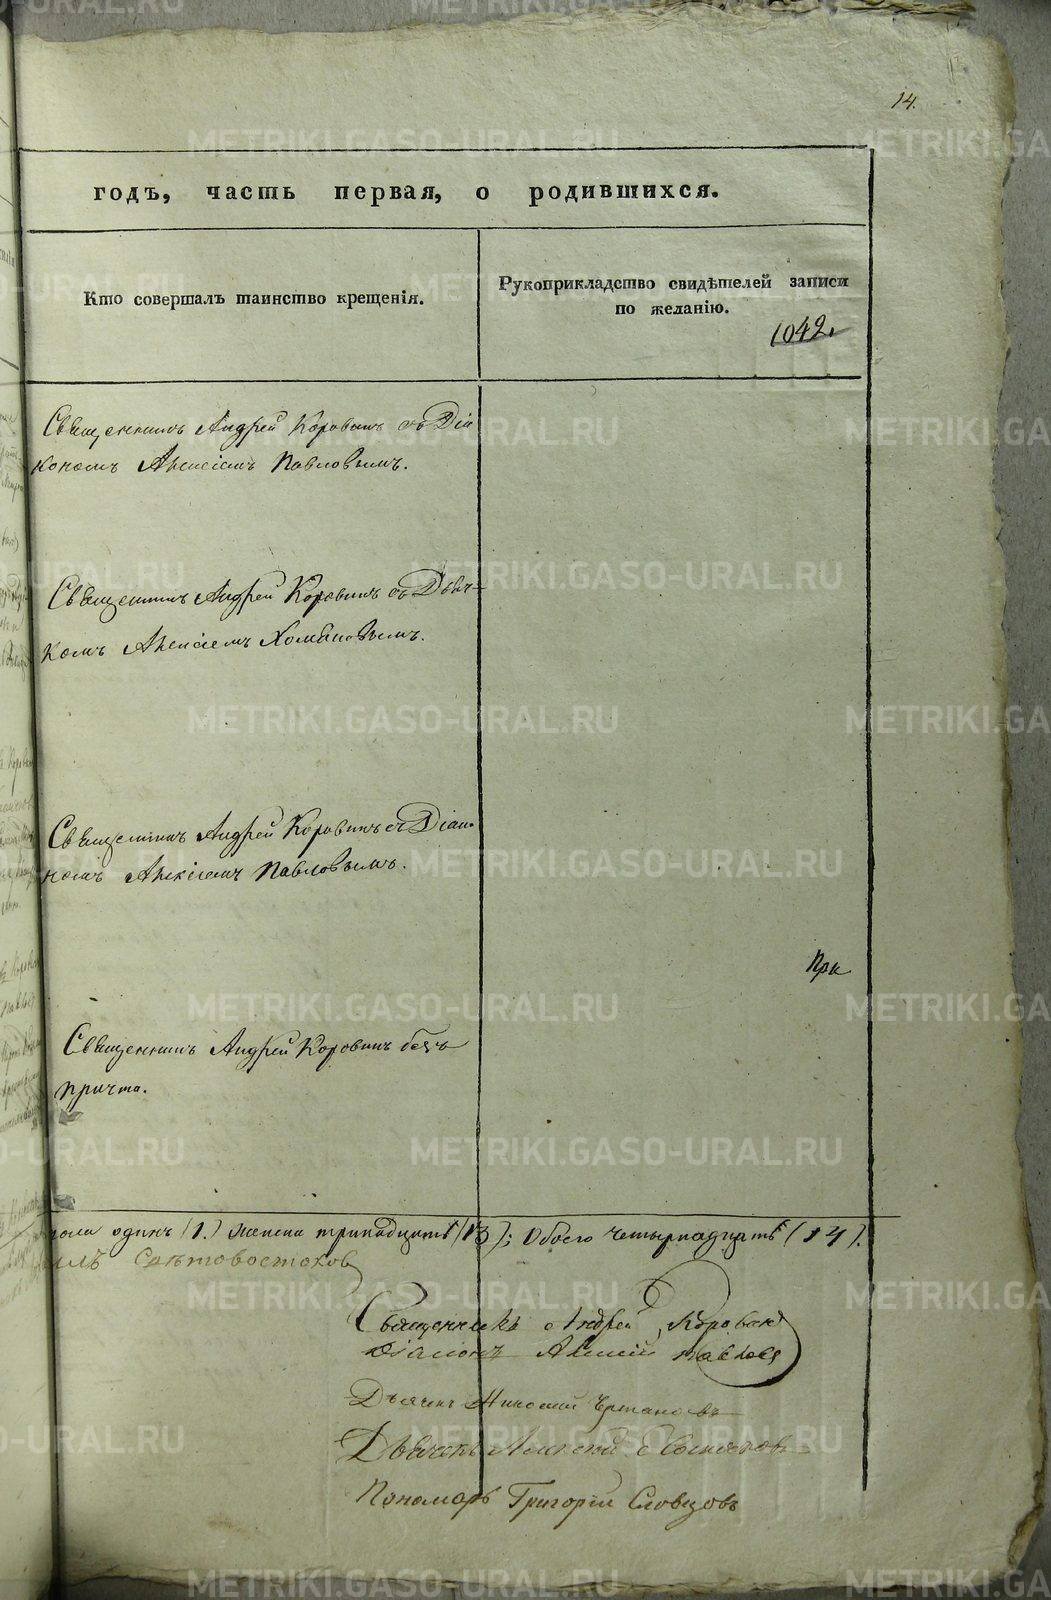 14.
годъ, часть первая, о родившихся.
Кто совершалъ таинство крещенія.
Рукоприкладство свидѣтелей записи
по желанію.
1042.
Священникъ Андрей Коровинъ съ Діа
кономъ Алексіемъ Павловымъ.
Священникъ Андрей Коровинъ съ Дьяч-
комъ Алексіемъ
Священникъ Андрей Коровинъ съ Діако-
номъ Алексіемъ Павловымъ.
При
Священникъ Андрей Коровинъ безъ
причта.
пола одинъ (1.) женска тринадцать (13); Обоего четырнадцать (14).
Священникъ Андрей Коровин
Діаконъ Алексій Павловъ
Дьячекъ Николай
Дьячекъ Алексей
Пономарь Григорій Словцовъ
METRIKI.GASO-URAL.RU